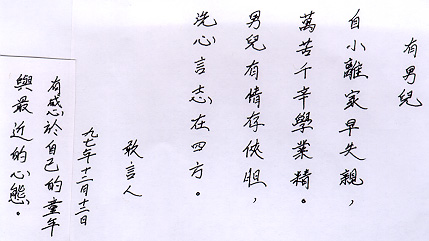 有男兒
自小離家早失親，
萬苦千辛學業精。
男兒有情存俠胆，
洗心言志在四方。
敢言人
九七年十二月十二日
有感於自己的童年
與最近的心態。